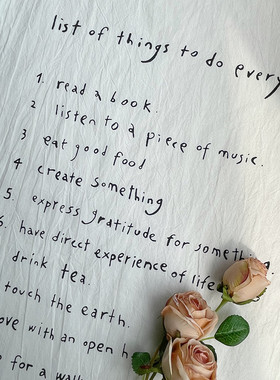 list of things to do every
1. read a book.
2 listen to a piece of music.
3 eat good food
4 create something
5. express gratitude for something.
6. have direct experience of life
drink tea.
touch the earth.
with an open
for a walk